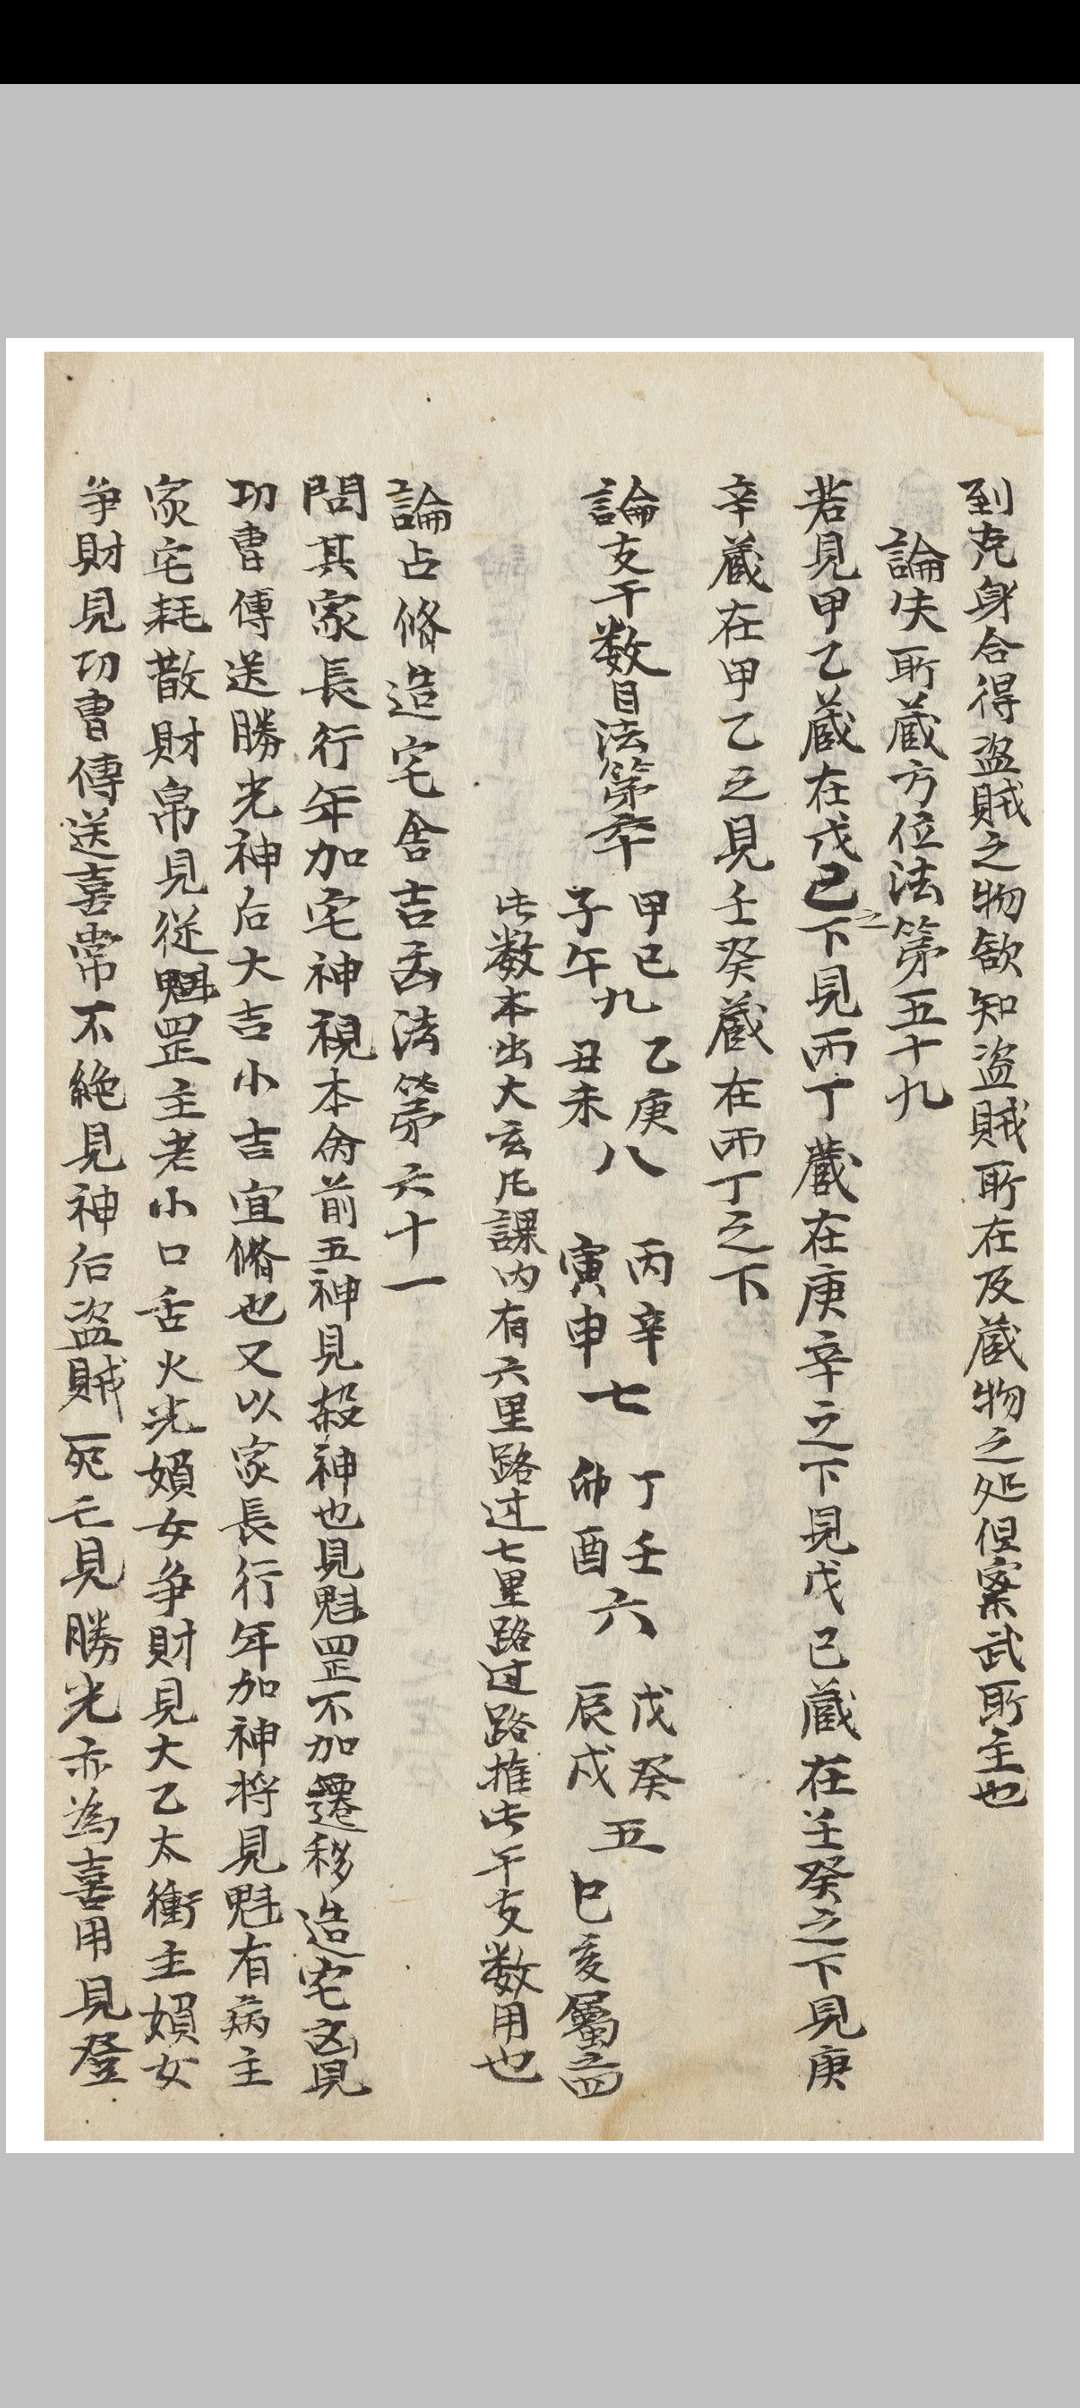 到克身合得盗賊之物欲知盗賊所在及蔵物之処但案武所主也
論失所蔵方位法第五十九
若見甲乙蔵在戊己之下見丙丁蔵在庚辛之下見戊己蔵在壬癸之下見庚
辛蔵在甲乙之見壬癸蔵在丙丁之下
論支干数目法第六十
甲己子午九 乙庚丑未八 丙辛寅申七 丁壬卯酉六 戊癸辰戌五 巳亥屬之四
此数本出大玄凡課内有六里路过七里路过路推此干支数用也
論占脩造宅舎吉凶法第六十一
問其家長行年加宅神視本命前五神見殺神也見魁罡不加遷移造宅凶見
功曹傳送勝光神后大吉小吉宜脩也又以家長行年加神将見魁有病主
家宅耗散財帛見従魁罡主老小口舌火光婦女争財見大乙太衝主婦女
争財見功曹傳送喜常不絶見神后盗賊死亡見勝光亦為喜用見登